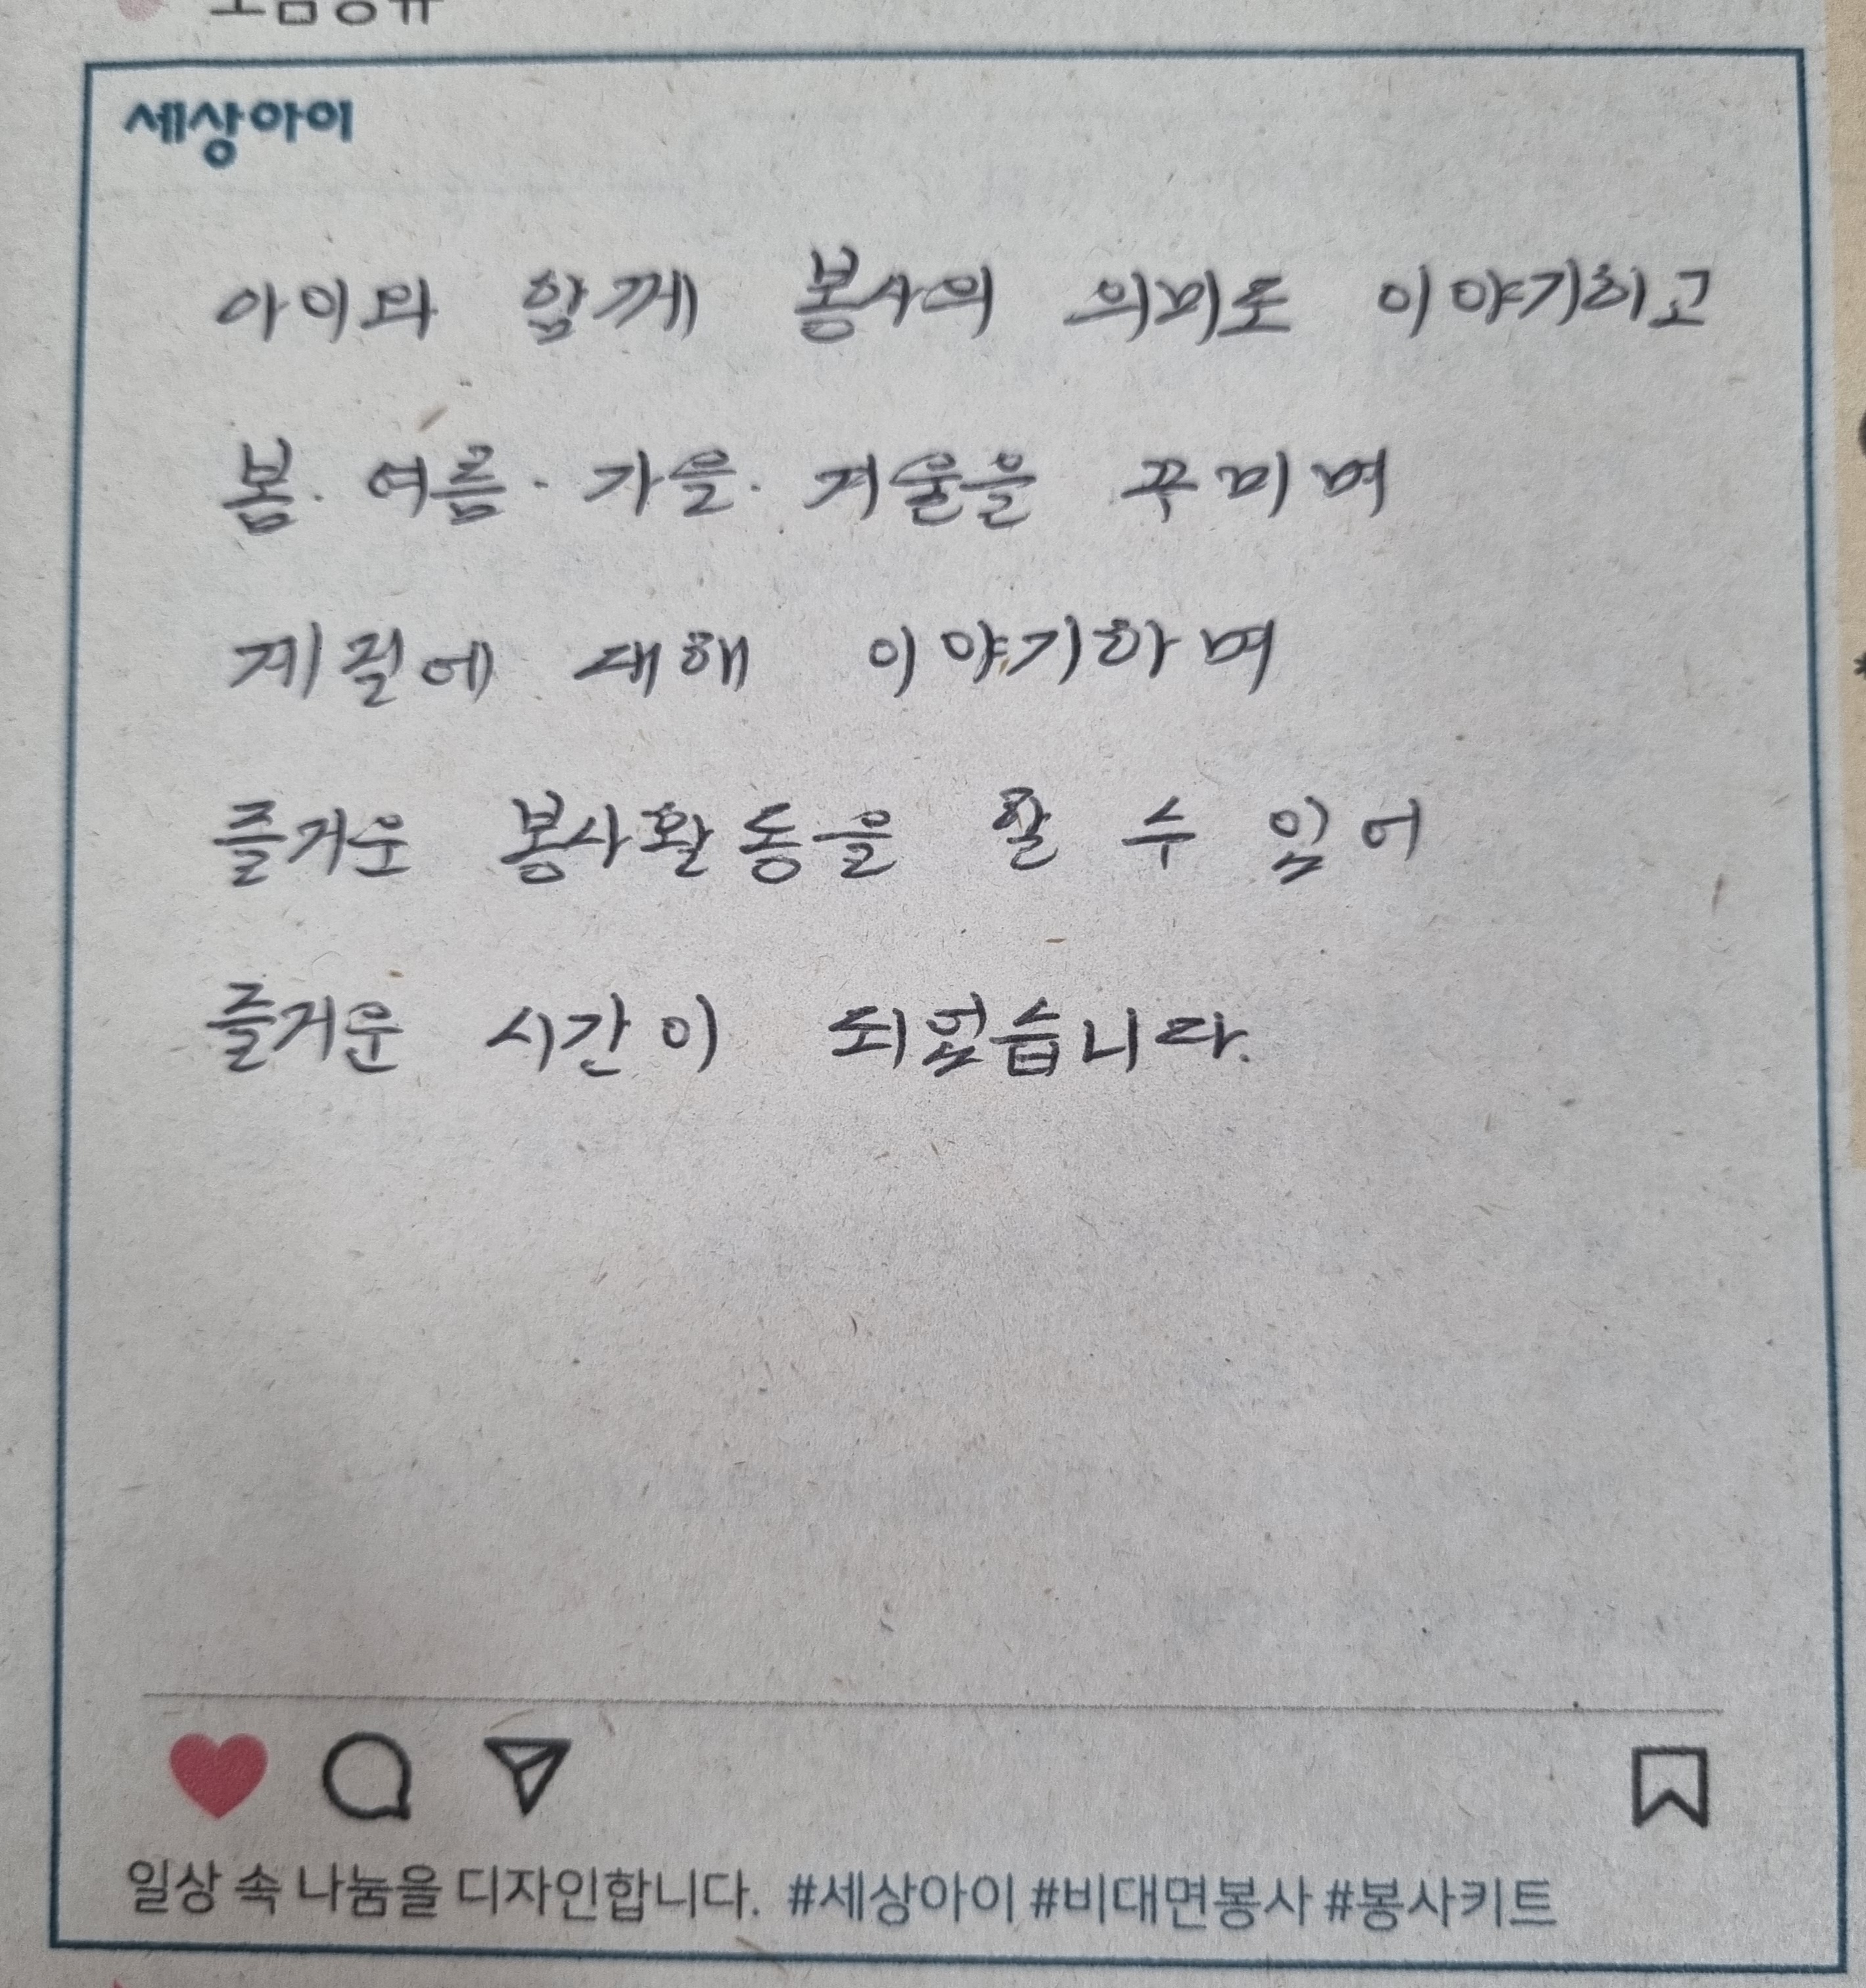 소감공유
세상아이
아이와 함께 봉사의 의미도 이야기하고
봄. 여름. 가을. 겨울을 꾸미며
계절에 대해 이야기하며
즐거운 봉사활동을 할 수 있어
즐거운 시간이 되었습니다.
일상 속 나눔을 디자인합니다. #세상아이 #비대면봉사 #봉사키트